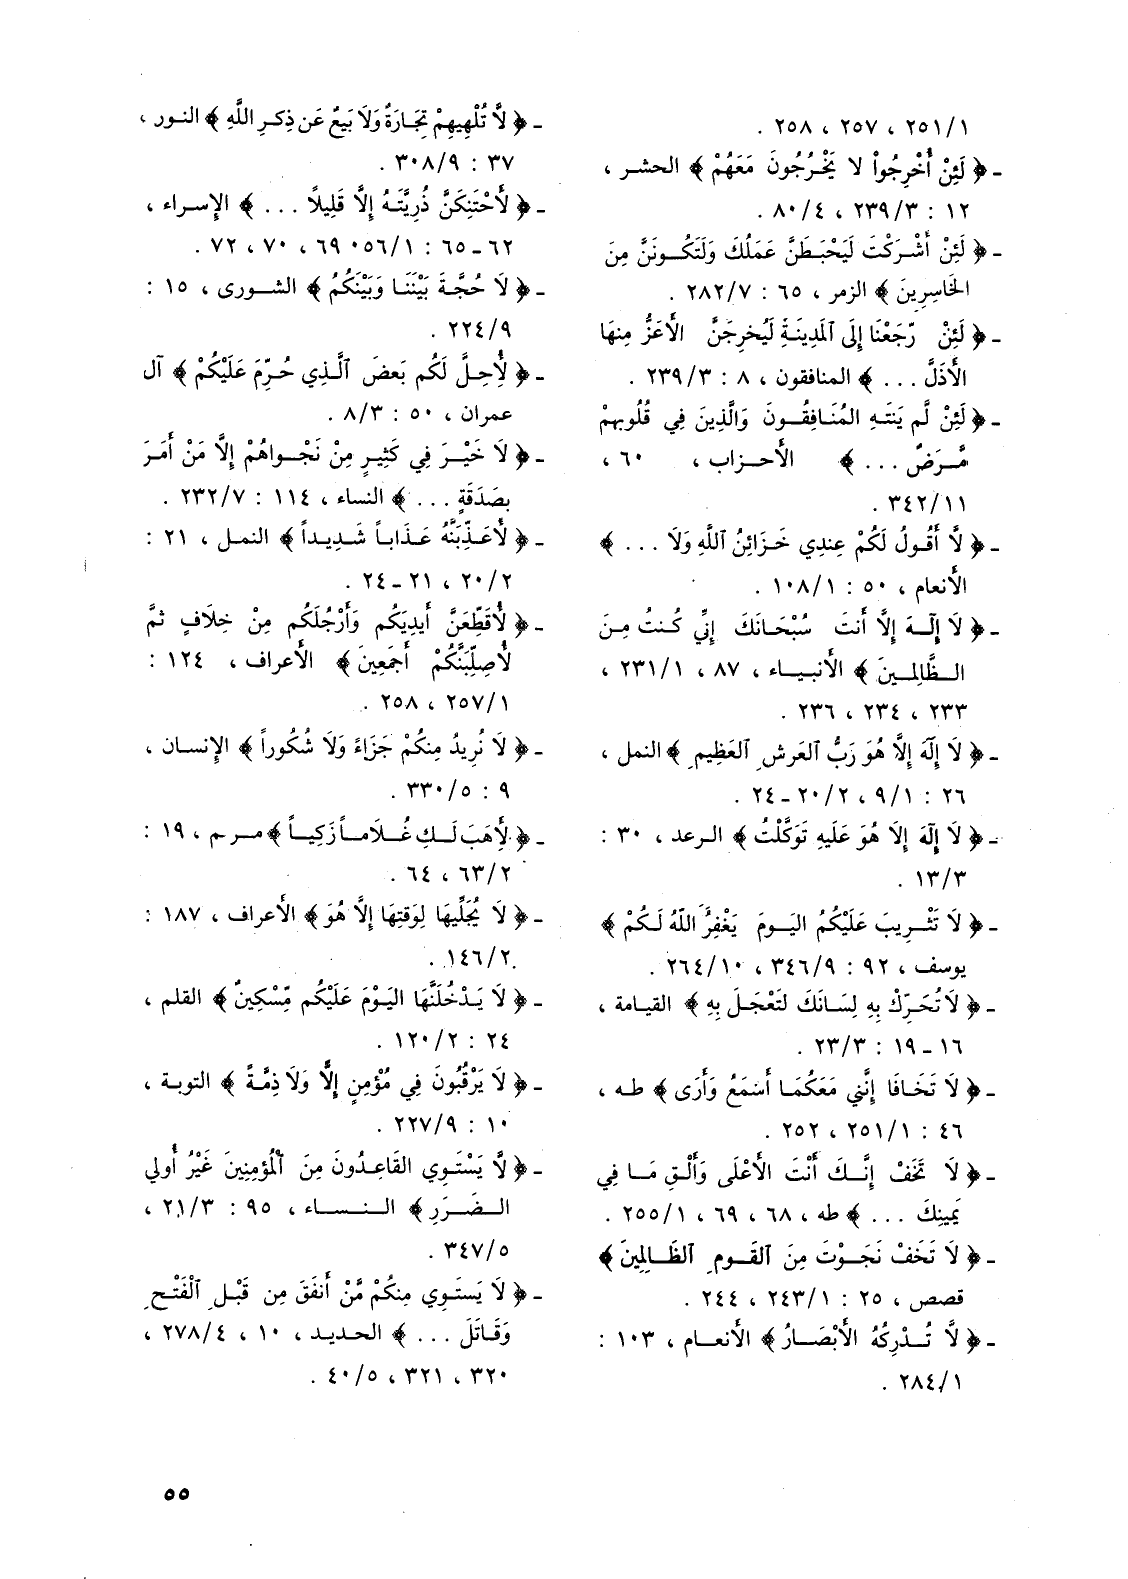 ٢٥١/١ ، ٢٥٧ ، ٢٥٨ .
ـ ﴿ لَئِنْ أُخْرِجُواْ لا يَخْرُجُونَ مَعَهُمْ ﴾ الحشر ،
١٢ : ٢٣٩/٣ ، ٨٠/٤ .
ـ ﴿ لَئِنْ أَشْرَكْتَ لَيَحْبَطَنَّ عَمَلُكَ وَلَتَكُونَنَّ مِنَ
الخَاسِرِينَ ﴾ الزمر ، ٦٥ : ٢٨٢/٧ .
ـ ﴿ لَئِنْ رَّجَعْنَا إِلَى ٱلْمَدِينَةِ لَيُخرِجَنَّ الأَعَزُّ مِنهَا
الأَذَلَّ ... ﴾ المنافقون ، ٨ : ٢٣٩/٣ .
ـ ﴿ لَئِنْ لَّم يَنتَهِ المُنَافِقُونَ وَالَّذِينَ فِي قُلُوبِهِمْ
مَّرَضٌ ... ﴾ الأحزاب ، ٦٠ ،
٣٤٢/١١ .
ـ ﴿ لاَّ أَقُولُ لَكُمْ عِندِي خَزَائِنُ ٱللَّهِ وَلَا ... ﴾
الأنعام ، ٥٠ : ١٠٨/١ .
ـ ﴿ لَا إِلَـهَ إِلاَّ أَنتَ سُبْحَانَكَ إِنِّي كُنتُ مِنَ
الظَّالِمِينَ ﴾ الأنبياء ، ٨٧ ، ٢٣١/١ ،
٢٣٣ ، ٢٣٤ ، ٢٣٦ .
ـ ﴿ لَا إِلَهَ إِلاَّ هُوَ رَبُّ ٱلعَرشِ ٱلعَظِيمِ ﴾ النمل ،
٢٦ : ٩/١ ، ٢٠/٢ ـ ٢٤ .
ـ ﴿ لَا إِلَهَ إِلَا هُوَ عَلَيهِ تَوَكَّلْتُ ﴾ الرعد ، ٣٠ :
١٣/٣ .
ـ ﴿ لَا تَثْرِيبَ عَلَيْكُمُ اليَومَ يَغْفِرُ اللَّهُ لَكُمْ ﴾
يوسف ، ٩٢ : ٣٤٦/٩ ، ٢٦٤/١٠ .
ـ ﴿ لَا تُحَرِّكْ بِهِ لِسَانَكَ لتَعْجَلَ بِهِ ﴾ القيامة ،
١٦ ـ ١٩ : ٢٣/٣ .
ـ ﴿ لَا تَخَافَا إِنَّنِي مَعَكُمَا أَسْمَعُ وَأَرَى ﴾ طه ،
٤٦ : ٢٥١/١ ، ٢٥٢ .
ـ ﴿ لَا تَخَفْ إِنَّكَ أَنْتَ الأَعْلَى وَأَلْقِ مَا فِي
يَمِينِكَ ... ﴾ طه ، ٦٨ ، ٦٩ ، ٢٥٥/١ .
ـ ﴿ لَا تَخَفْ نَجَوْتَ مِنَ القَومِ الظَالِمِينَ ﴾
قصص ، ٢٥ : ٢٤٣/١ ، ٢٤٤ .
ـ ﴿ لاَّ تُدْرِكُهُ الأَبْصَارُ ﴾ الأنعام ، ١٠٣ :
٢٨٤/١ .
ـ ﴿ لاَّ تُلْهِيهِمْ تِجَارَةٌ وَلَا بَيعٌ عَن ذِكرِ اللَّهِ ﴾ النور ،
٣٧ : ٣٠٨/٩ .
ـ ﴿ لأَحْتَنِكَنَّ ذُرِيَّتَهُ إِلاَّ قَلِيلاً ... ﴾ الإسراء ،
٦٢ ـ ٦٥ : ٥٦/١ ، ٦٩ ، ٧٠ ، ٧٢ .
ـ ﴿ لَا حُجَّةَ بَيْنَنَا وَبَيْنَكُمُ ﴾ الشورى ، ١٥ :
٢٢٤/٩ .
ـ ﴿ لأُحِلَّ لَكُم بَعضَ ٱلَّذِي حُرِّمَ عَلَيْكُمْ ﴾ آل
عمران ، ٥٠ : ٨/٣ .
ـ ﴿ لَا خَيْرَ فِي كَثِيرٍ مِنْ نَجْوَاهُمْ إِلاَّ مَنْ أَمَرَ
بِصَدَقَةٍ ... ﴾ النساء ، ١١٤ : ٢٣٢/٧ .
ـ ﴿ لأُعَذِّبَنَّهُ عَذَاباً شَدِيداً ﴾ النمل ، ٢١ :
٢٠/٢ ، ٢١ ـ ٢٤ .
ـ ﴿ لأُقَطِّعَنَّ أَيدِيَكُم وَأَرْجُلَكُم مِنْ خِلَافٍ ثمَّ
لأُصلِّبَنَّكُمْ أَجَمَعِينَ ﴾ الأعراف ، ١٢٤ :
٢٥٧/١ ، ٢٥٨ .
ـ ﴿ لَا نُرِيدُ مِنكُمْ جَزَاءً وَلَا شُكُوراً ﴾ الإنسان ،
٩ : ٣٣٠/٥ .
ـ ﴿ لأَهَبَ لَكِ غُلَاماً زَكِياً ﴾ مريم ، ١٩ :
٦٣/٢ ، ٦٤ .
ـ ﴿ لَا يُجَلِّيهَا لِوَقتِهَا إِلاَّ هُوَ ﴾ الأعراف ، ١٨٧ :
١٤٦/٢ .
ـ ﴿ لَا يَدْخُلَنَّهَا اليَوْمَ عَلَيْكُم مِّسْكِينٌ ﴾ القلم ،
٢٤ : ١٢٠/٢ .
ـ ﴿ لَا يَرْقُبُونَ فِي مُؤْمِنٍ إِلاًّ وَلَا ذِمَّةً ﴾ التوبة ،
١٠ : ٢٢٧/٩ .
ـ ﴿ لاَّ يَسْتَوِي القَاعِدُونَ مِنَ ٱلْمُؤمِنِينَ غَيْرُ أُولي
الضَرَرِ ﴾ النساء ، ٩٥ : ٢١/٣ ،
٣٤٧/٥ .
ـ ﴿ لَا يَستَوِي مِنكُمْ مَّنْ أَنفَقَ مِن قَبْلِ ٱلْفَتْحِ
وَقَاتَلَ ... ﴾ الحديد ، ١٠ ، ٢٧٨/٤ ،
٣٢٠ ، ٣٢١ ، ٤٠/٥ .
٥٥